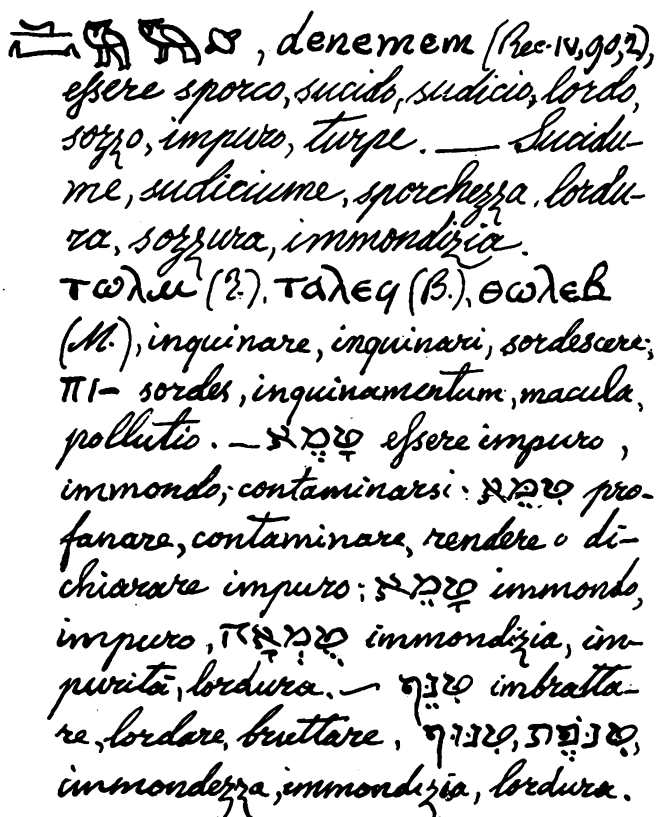 , denemem (Rec. IV, 90, 2),
eſsere sporco, sucido, sudicio, lordo,
sozzo, impuro, turpe. — Sucidu-
me, sudiciume, sporchezza, lordu-
ra, sozzura, immondizia.
ⲧⲱⲗⲙ ⲧⲁⲗⲉϥ (B.), ⲑⲱⲗⲉⲃ
(M.), inquinare, inquinari, sordescere;
ⲡⲓ– sordes, inquinamentum, macula,
pollutio. — טָמֵא eſsere impuro,
immondo; contaminarsi; טִמֵּא pro-
fanare, contaminare, rendere o di-
chiarare impuro; טָמֵא immondo,
impuro, טֻמְאָה immondizia, im-
purità, lordura. — טִנֵּף imbratta-
re, lordare, bruttare, טִנֹּפֶת, טִנּוּף,
immondezza, immondizia, lordura.